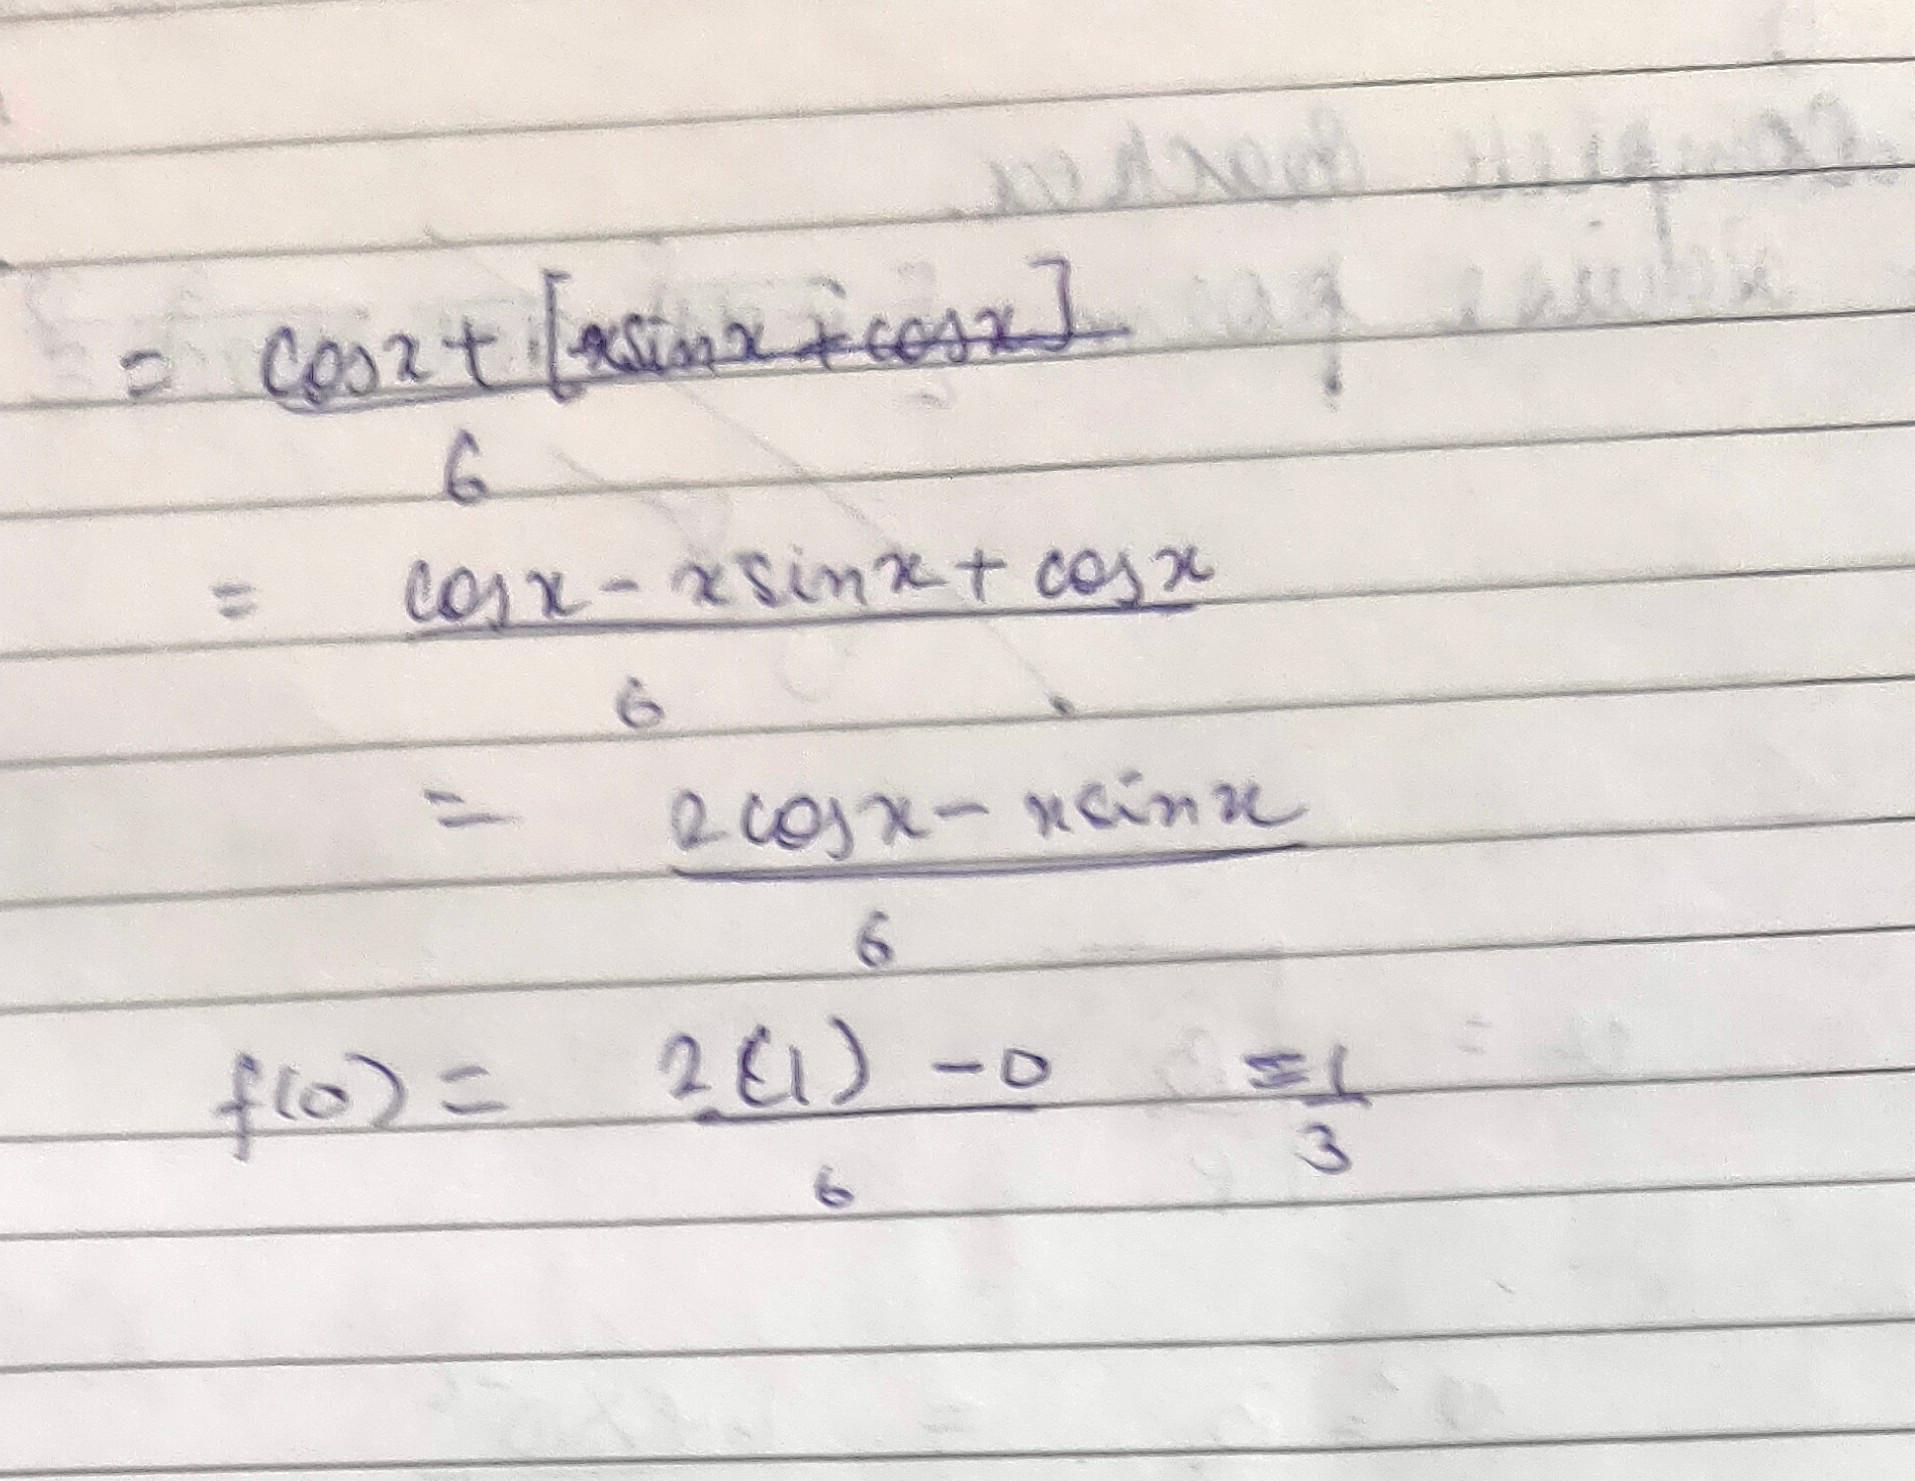 = cosx + [xsinx + cosx]
6
= cosx - xsinx + cosx
6
= 2cosx - xsinx
6
f(0) = 2(1) - 0 = 1
6 3